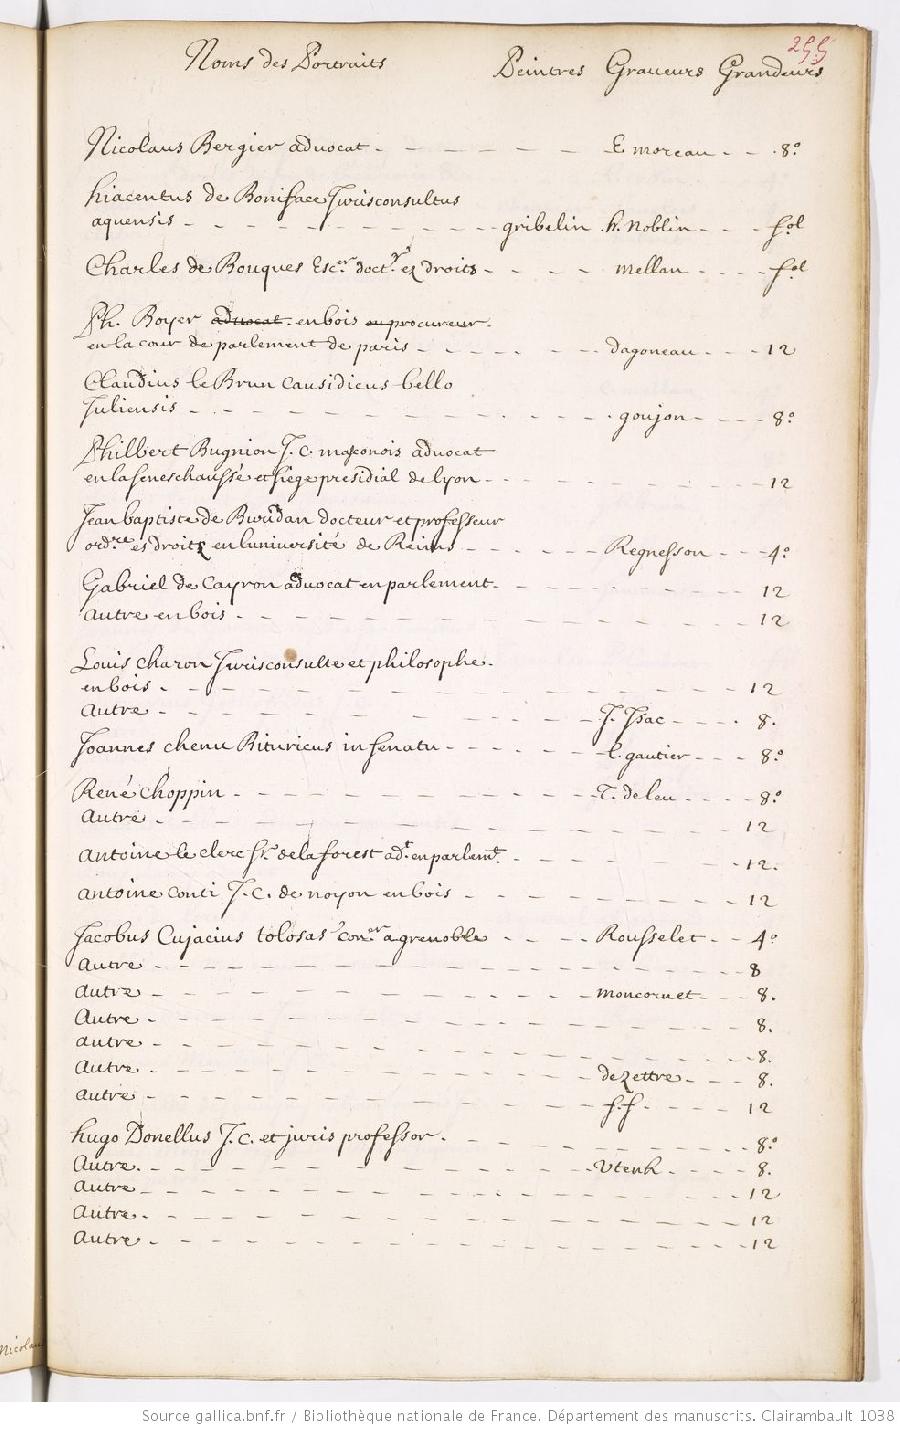 255
Noms des Portraits Peintres Graueurs Grandeurs
Nicolaus Bergier aduocat - - - - - - E moreau - - 8°
hiacentus de Boniface Jurisconsultus
aquensis - - - - - - - - gribelin h. Noblin - - - fol
Charles de Bouques Escer doctr ez droits - - - - mellan - - - - fol
Ph. Boyer aduocat en bois en procureur
en la cour de parlement de paris - - - - - dagoneau - - - 12
Claudius le Brun Causidicus bello
Juliensis - - - - - - - - - goujon - - - 8°
Philbert Bugnion J. c. maçonois aduocat
en la seneschaussé et siege presidial de lyon - - - - - - 12
Jean baptiste de Buridan docteur et professeur
ordre es droitz en luniuersité de Reims - - - - - Regnesson - - - 4°
Gabriel de Cayron aduocat en parlement - - - - - - 12
autre en bois - - - - - - - - - 12
Louis charon Jurisconsulte et philosophe.
en bois - - - - - - - - - 12
autre - - - - - - - - J. Isac - - - 8.
Joannes chenu Bituricus in senatu - - - - - l. gautier - - - 8°
René choppin - - - - - - - T. deleu - - - - 8°
autre - - - - - - - - - 12
antoine le clerc sr. de la forest adt. en parlemt. - - - - 12.
antoine conti J. C. de noyon en bois - - - - - - 12
Jacobus Cujacius tolosas coner a grenoble - - - - Rousselet - - 4°
autre - - - - - - - - - 8
autre - - - - - - - - moncornet - - 8.
autre - - - - - - - - - 8.
autre - - - - - - - - - 8.
autre - - - - - - - - dezettre - - - 8.
autre - - - - - - - - f. f. - - - - 12
hugo Donellus J. C. et juris professor. - - - - - 8°
autre. - - - - - - - - vtenh - - - - 8.
autre - - - - - - - - - 12
autre. - - - - - - - - - 12
autre - - - - - - - - - 12
Nicolau
Source gallica.bnf.fr / Bibliothèque nationale de France. Département des manuscrits. Clairambault 1038